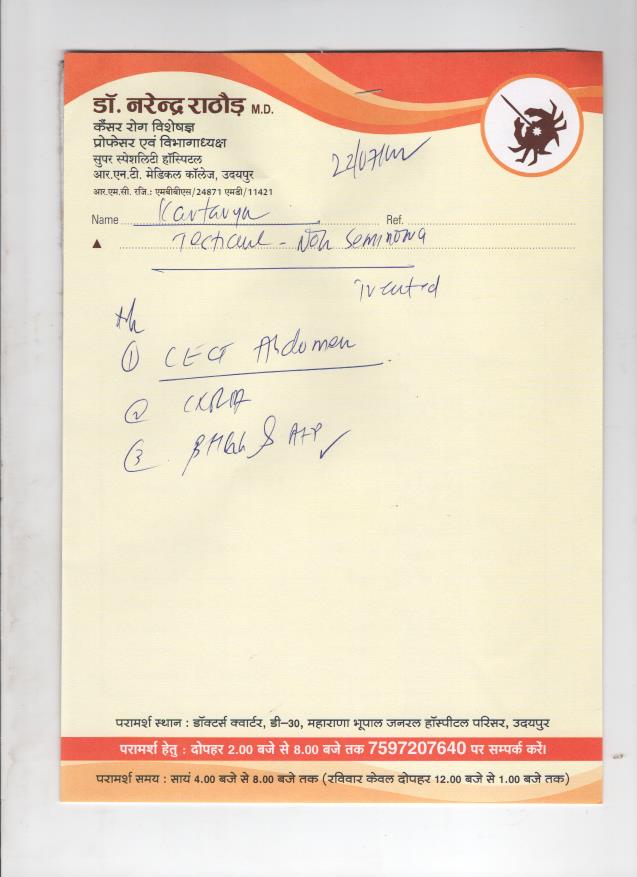 डॉ. नरेन्द्र राठौड़ M.D.
कैंसर रोग विशेषज्ञ
प्रोफेसर एवं विभागाध्यक्ष
सुपर स्पेशलिटी हॉस्पिटल
आर.एन.टी. मेडिकल कॉलेज, उदयपुर
आर.एम.सी. रजि.: एमबीबीएस/24871 एमडी/11421
22/07/
Name Kartavya Ref.
- Non Seminoma
Treated
① CECT Abdomen
②
③ & AFP ✓
परामर्श स्थान : डॉक्टर्स क्वार्टर, डी-30, महाराणा भूपाल जनरल हॉस्पीटल परिसर, उदयपुर
परामर्श हेतु : दोपहर 2.00 बजे से 8.00 बजे तक 7597207640 पर सम्पर्क करें।
परामर्श समय : सायं 4.00 बजे से 8.00 बजे तक (रविवार केवल दोपहर 12.00 बजे से 1.00 बजे तक)